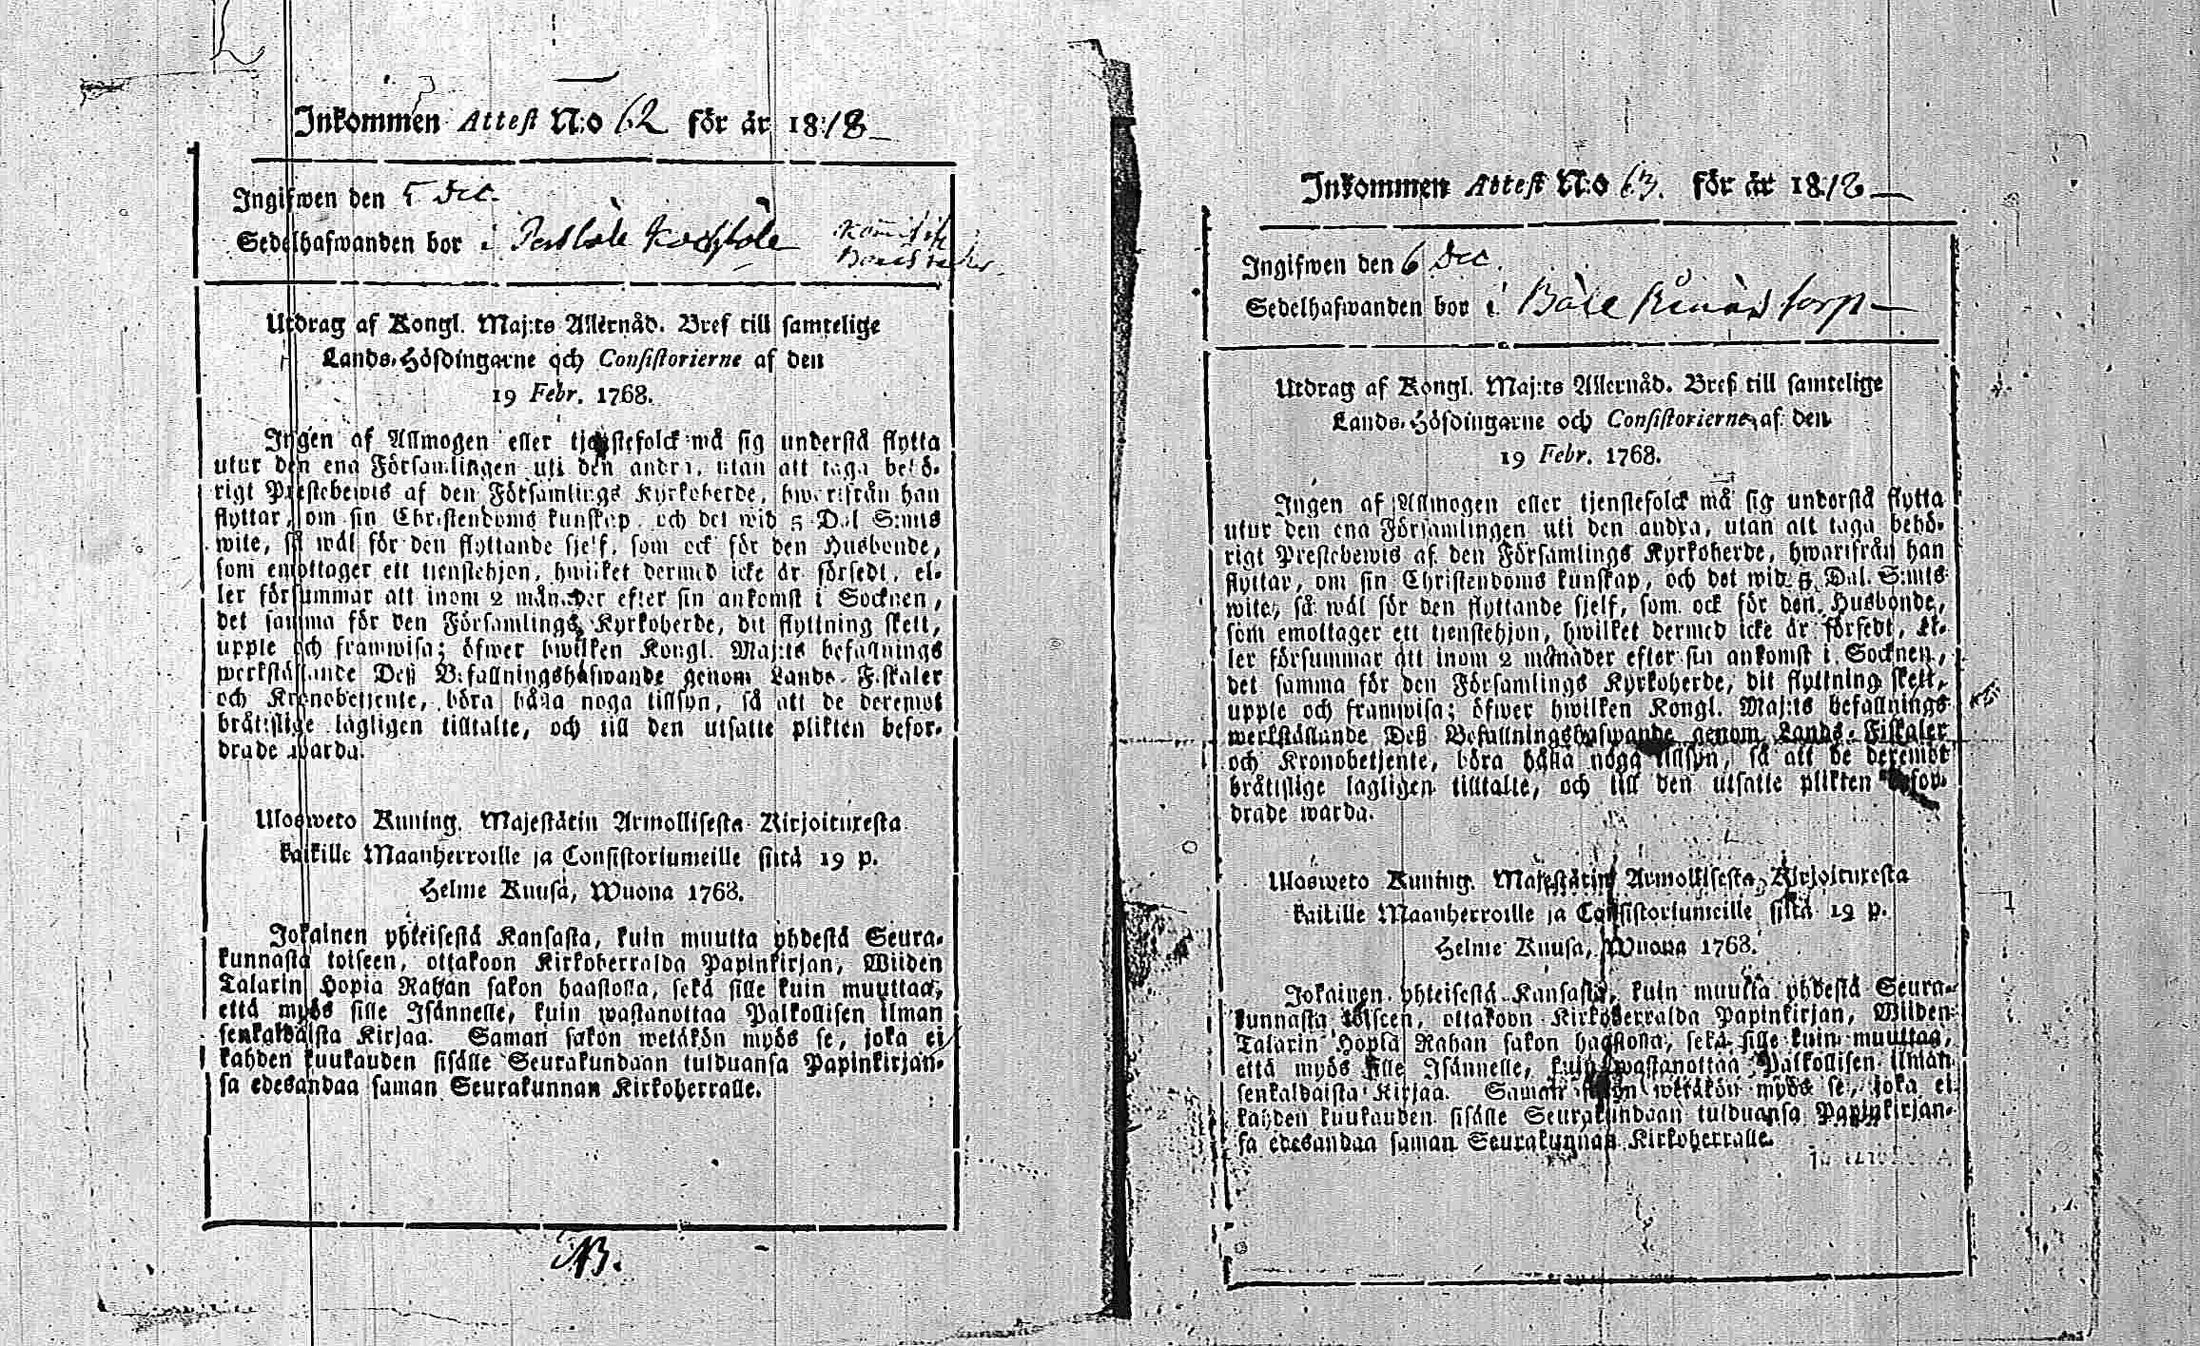 Inkommen Attest N:o 62 för år 1818
Ingifwen den 5 Dec.
Sedelhafwanden bor i
Utdrag af Kongl. Maj:ts Allernåd. Bref till samtelige
Lands-Höfdingarne och Consistorierne af den
19 Febr. 1768.
Ingen af Allmogen eller tjenstefolck må sig understå flytta
utur den ena Församlingen uti den andra, utan att taga behö-
rigt Prestebewis af den Församlings Kyrkoherde, hwarifrån han
flyttar, om sin Christendoms kunskap, och det wid 5 Dal. S:mts
wite, så wäl för den flyttande sjelf, som ock för den Husbonde,
som emottager ett tienstehjon, hwilket dermed icke är försedt, el-
ler försummar att inom 2 månader efter sin ankomst i Socknen,
det samma för den Församlings Kyrkoherde, dit flyttning skett,
upple och framwisa; öfwer hwilken Kongl. Maj:ts befallnings
werkställande Deß Befallningshafwande genom Lands-Fiskaler
och Kronobetjente, böra hålla noga tillsyn, så att de deremot
bråttslige lagligen tilltalte, och till den utsatte plikten befor-
drade warda.
Ulosweto Kuning. Majestätin Armollisesta Kirjoituxesta
kaikille Maanherroille ja Consistoriumeille siitä 19 p.
Helme Kuusa, Wuona 1768.
Jokainen yhteisestä Kansasta, kuin muutta yhdestä Seura-
kunnasta toiseen, ottakoon Kirkoherralda Papinkirjan, Wiiden
Talarin Hopia Rahan sakon haastolla, sekä sille kuin muuttaa,
että myös sille Isännelle, kuin wastanottaa Palkollisen ilman
senkaldaista Kirjaa. Saman sakon wetäkön myös se, joka ei
kahden kuukauden sisälle Seurakundaan tulduansa Papinkirjan-
sa edesandaa saman Seurakunnan Kirkoherralle.
NB.
Inkommen Attest N:o 63. för år 1818
Ingifwen den 6 Dec.
Sedelhafwanden bor i torp
Utdrag af Kongl. Maj:ts Allernåd. Bref till samtelige
Lands-Höfdingarne och Consistorierne af den
19 Febr. 1768.
Ingen af Allmogen eller tjenstefolck må sig understå flytta
utur den ena Församlingen uti den andra, utan att taga behö-
rigt Prestebewis af den Församlings Kyrkoherde, hwarifrån han
flyttar, om sin Christendoms kunskap, och det wid 5 Dal. S:mts
wite, så wäl för den flyttande sjelf, som ock för den Husbonde,
som emottager ett tienstehjon, hwilket dermed icke är försedt, el-
ler försummar att inom 2 månader efter sin ankomst i Socknen,
det samma för den Församlings Kyrkoherde, dit flyttning skett,
upple och framwisa; öfwer hwilken Kongl. Maj:ts befallnings
werkställande Deß Befallningshafwande genom Lands-Fiskaler
och Kronobetjente, böra hålla noga tillsyn, så att de deremot
bråttslige lagligen tilltalte, och till den utsatte plikten befor-
drade warda.
Ulosweto Kuning. Majestätin Armollisesta Kirjoituxesta
kaikille Maanherroille ja Consistoriumeille siitä 19 p.
Helme Kuusa, Wuona 1768.
Jokainen yhteisestä Kansasta, kuin muutta yhdestä Seura-
kunnasta toiseen, ottakoon Kirkoherralda Papinkirjan, Wiiden
Talarin Hopia Rahan sakon haastolla, sekä sille kuin muuttaa,
että myös sille Isännelle, kuin wastanottaa Palkollisen ilman
senkaldaista Kirjaa. Saman sakon wetäkön myös se, joka ei
kahden kuukauden sisälle Seurakundaan tulduansa Papinkirjan-
sa edesandaa saman Seurakunnan Kirkoherralle.